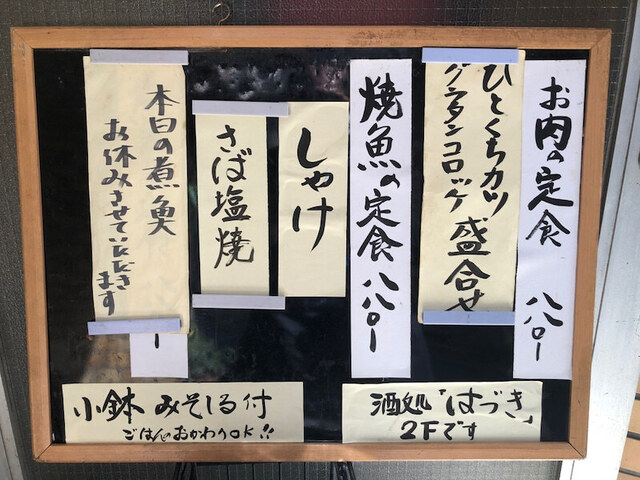 お肉の定食 八八〇ー
ひとくちカツ
グラタンコロッケ 盛合せ
焼魚の定食 八八〇ー
しゃけ
さば塩焼
本日の煮魚
お休みさせていただき
ます
ー
小鉢 みそしる付
ごはんおかわりOK!!
酒処「はづき」
2Fです